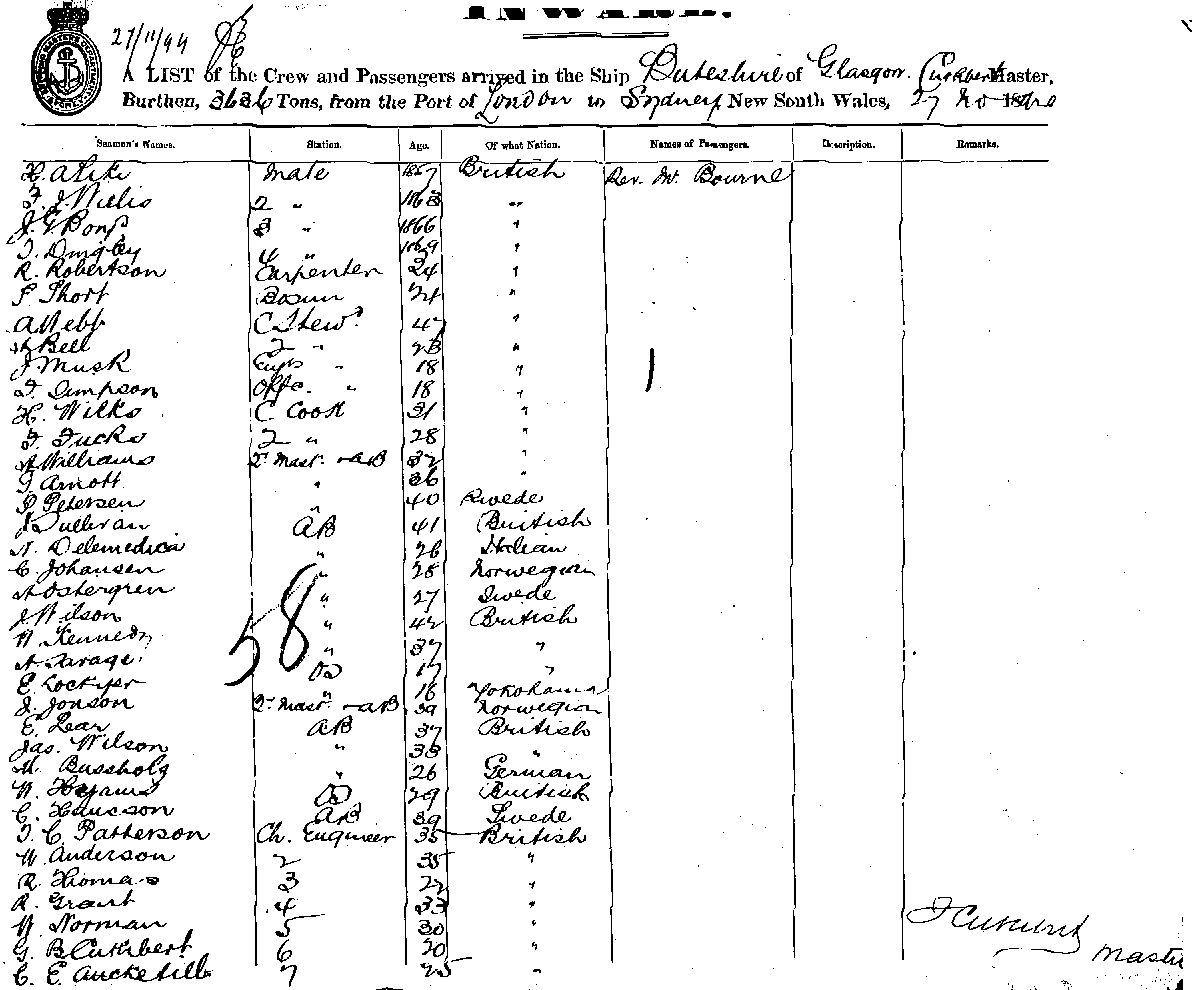 INWARD.
27/11/94
A LIST of the Crew and Passengers arrived in the Ship Buteshire of Glasgow. Cuthbert Master,
Burthen, 3636 Tons, from the Port of London to Sydney New South Wales, 27 Nov 18
Seamen's Names. Station. Age. Of what Nation. Names of Passengers. Description. Remarks.
mate 1867 British Rev. W. Bourne
F. J. Willis 2 " 1863 "
3 " 1866 "
T. Dingley 4 " 1869 "
R. Robertson Carpenter 24 "
Short Bosun 24 "
A Webb C Stewd 47 "
Bell 2 " 23 "
J Musk Capts " 18 "
F. Simpson Offs. " 18 "
H. Wilks C Cook 31 "
F. Tucks 2 " 28 "
A Williams Qr Mastr - AB 32 "
Arnott " 36 "
P Petersen " 40 Swede
J Sullivan AB 41 British
A. Delemedica " 26 Italian
C. Johansen " 28 Norwegian
A Ostergren " 27 Swede
J Wilson " 42 British
W. Kennedy " 37 "
A. Savage. OS 17 "
E. Lockyer " 16 Yokohama
J. Jonson Qr Mastr - AB 39 Norwegian
E. Lear AB 37 British
Jas. Wilson " 33 "
M. Bussholg " 26 German
W. Hyams OS 29 British
C. Hanson AB 39 Swede
T. C. Patterson Ch. Engineer 35 British
W. Anderson 2 35 "
R. Thomas 3 22 "
R. Grant 4 33 "
W. Norman 5 30 "
G. B Cuthbert 6 20 "
C. E. Aucketill 7 25 "
58
Cuthbert
Master